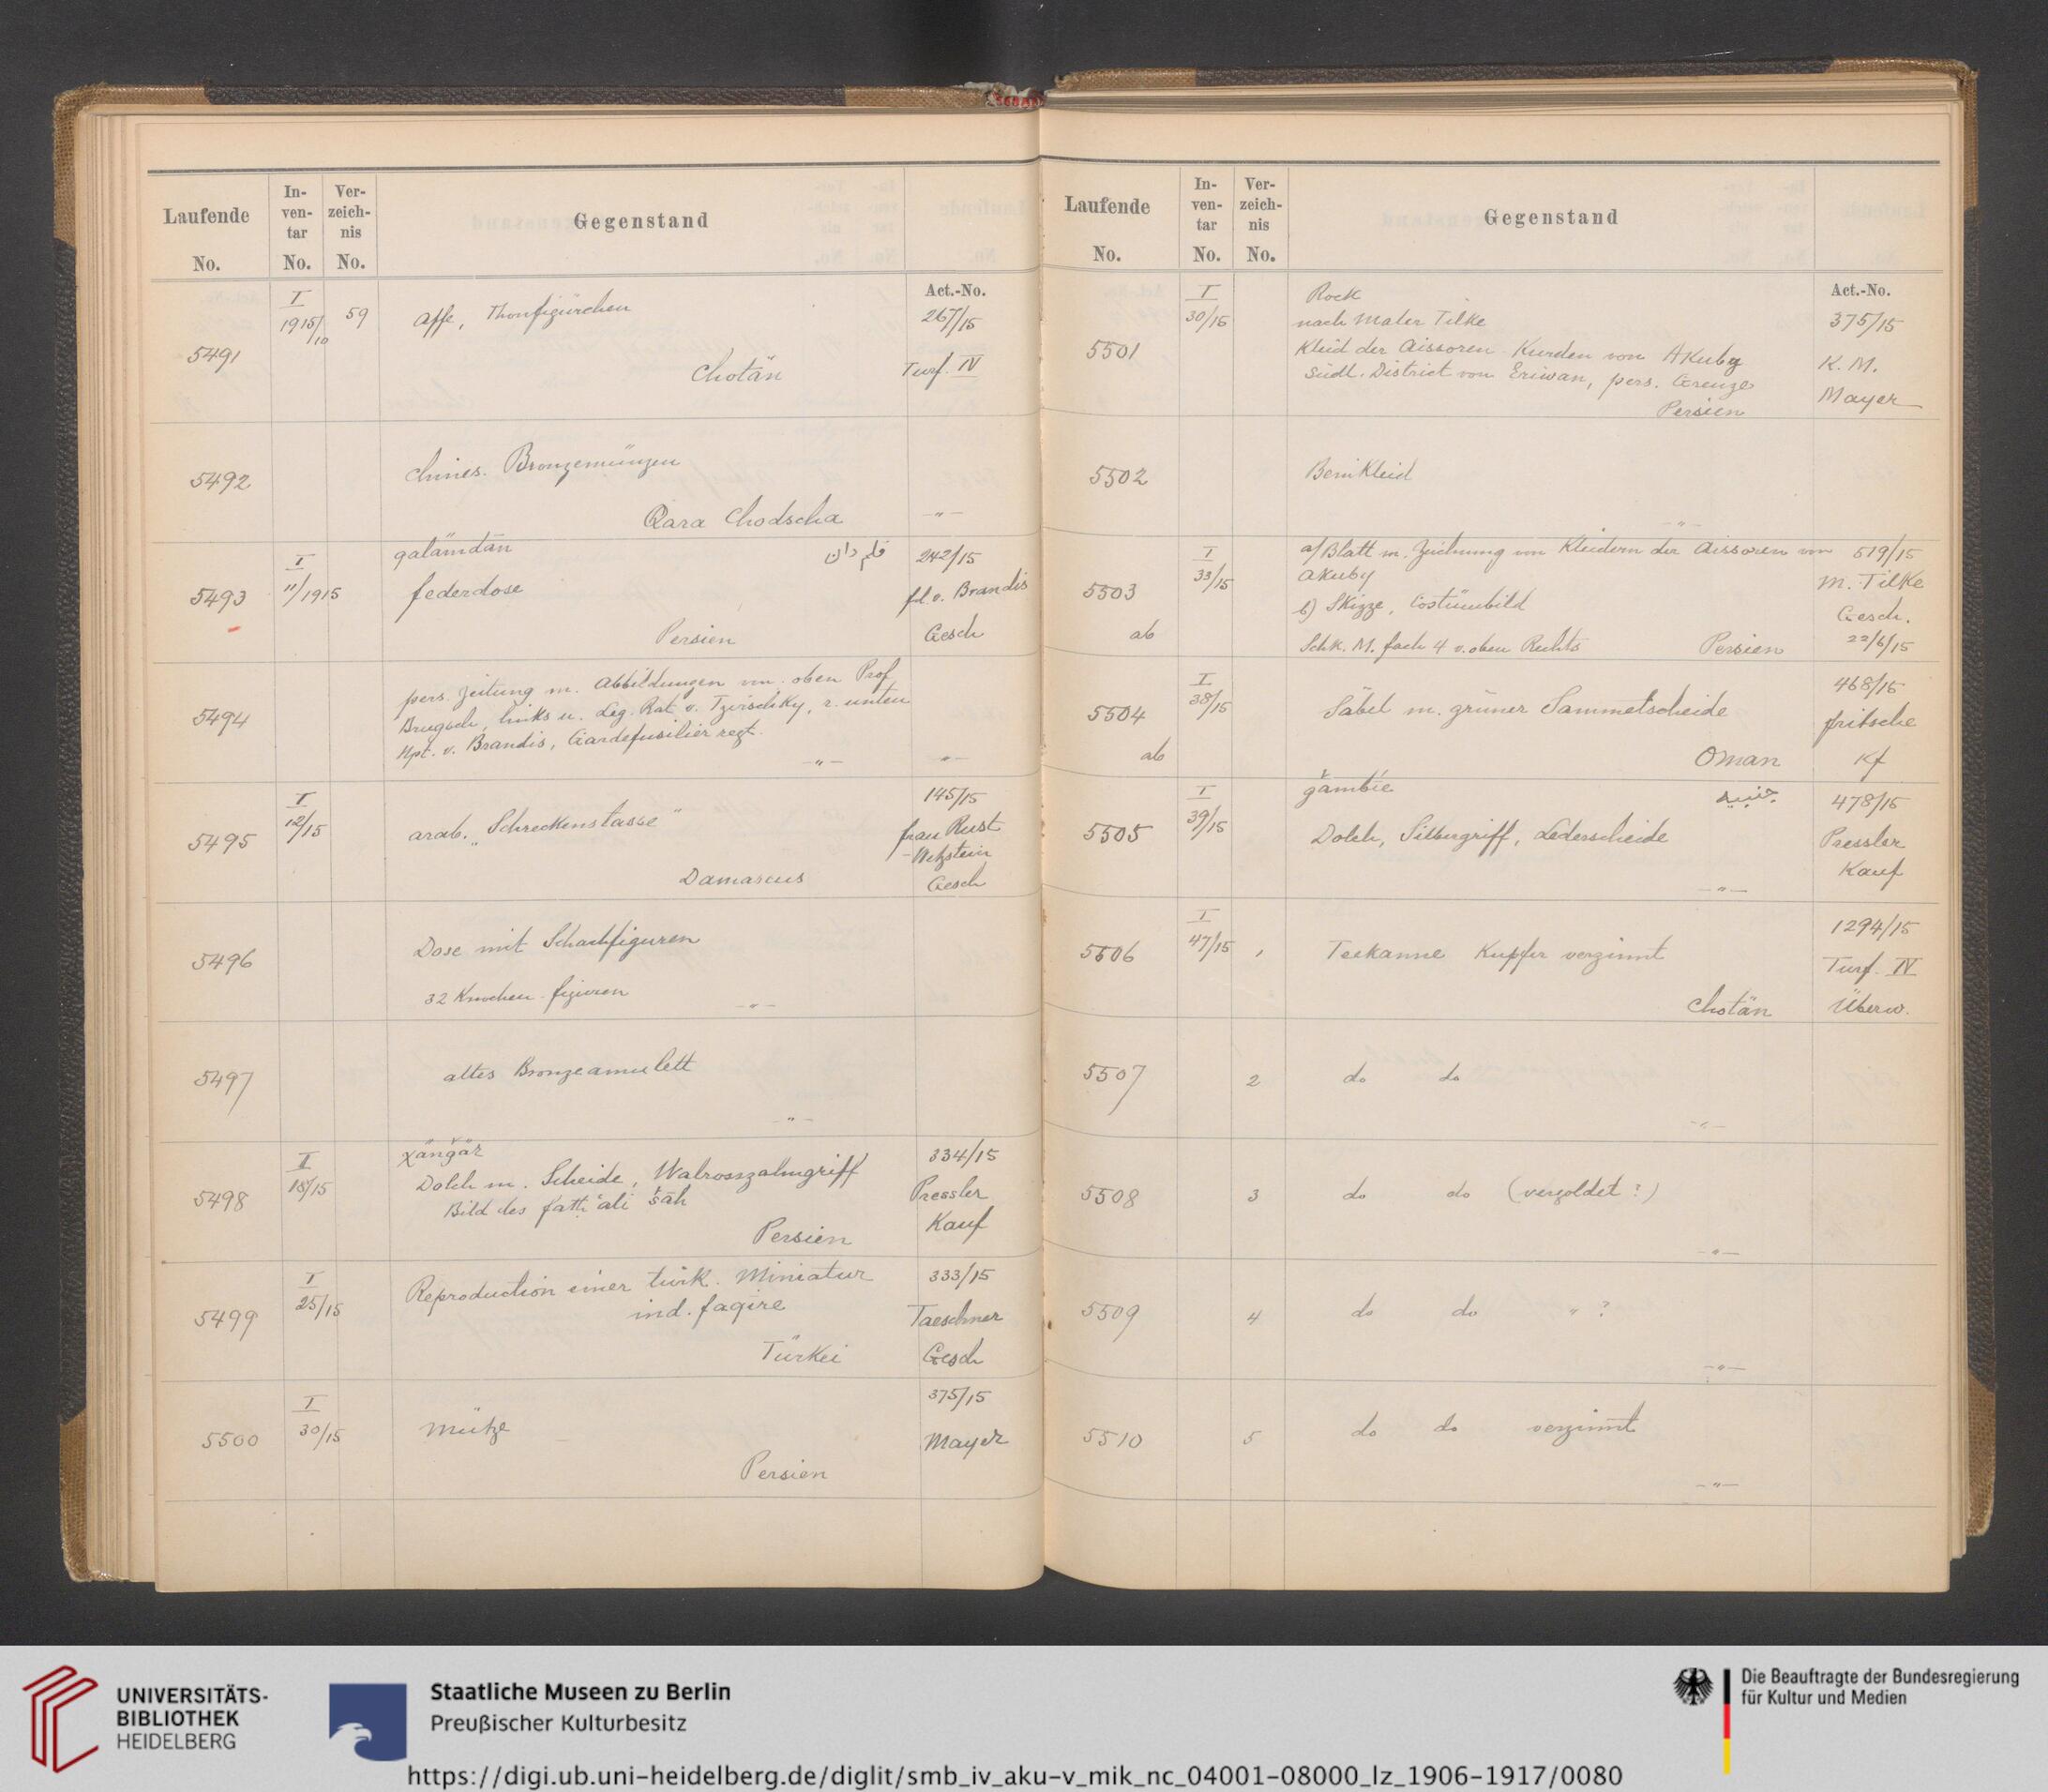 Laufende No.
In-ven-tar No.
Ver-zeich-nis No.
Gegenstand
Act.-No.
5491
I
1915/10
59
Affe, Thonfigürchen
Chotän
267/15
Turf. IV
5492
chines. Bronzemünzen
Qara Chodscha
-"-
5493
I
11/1915
qalämdān
قلم دان
federdose
Persien
242/15
fd. v. Brandis
Gesch
5494
pers. Zeitung m. Abbildungen von oben Prof
Brugsch, links u. Leg. Rat v. Tzirschky, r. unten
Hpt. v. Brandis, Gardefusilier regt.
-"-
-"-
5495
I
12/15
arab. „Schreckenstasse"
Damascus
145/15
frau Rust
-Wetzstein
Gesch
5496
Dose mit Schachfiguren
32 Knochen figuren
-"-
5497
altes Bronzeamulett
-"-
5498
I
18/15
χänǧär
Dolch m. Scheide, Walrosszahngriff
Bild des fatḥ ʿali šāh
Persien
334/15
Pressler
Kauf
5499
I
25/15
Reproduction einer türk. Miniatur
ind. faqire
Türkei
333/15
Taeschner
Gesch
5500
I
30/15
Mütze
Persien
375/15
Mayer
Laufende No.
In-ven-tar No.
Ver-zeich-nis No.
Gegenstand
Act.-No.
5501
I
30/15
Rock
nach Maler Tilke
Kleid der Aissoren Kurden von Akuby
Südl. District von Eriwan, pers. Grenze
Persien
375/15
K. M.
Mayer
5502
Beinkleid
-"-
5503
ab
I
33/15
a) Blatt m. Zeichnung von Kleidern der Aissoren von
Akuby
b) Skizze, Costümbild
Schk. M. fach 4 v. oben Rechts
Persien
519/15
M. Tilke
Gesch.
22/6/15
5504
ab
I
38/15
Säbel m. grüner Sammetscheide
Oman
468/15
fritsche
Kf
5505
I
39/15
ǧambíe
جنبيه
Dolch, Silbergriff, Lederscheide
-"-
478/15
Pressler
Kauf
5506
I
47/15
1
Teekanne Kupfer verzinnt
Chotän
1294/15
Turf. IV
Überw.
5507
2
do do
-"-
5508
3
do do (vergoldet?)
-"-
5509
4
do do " ?
-"-
5510
5
do do verzinnt
-"-
UNIVERSITÄTS-
BIBLIOTHEK
HEIDELBERG
Staatliche Museen zu Berlin
Preußischer Kulturbesitz
Die Beauftragte der Bundesregierung
für Kultur und Medien
https://digi.ub.uni-heidelberg.de/diglit/smb_iv_aku-v_mik_nc_04001-08000_lz_1906-1917/0080